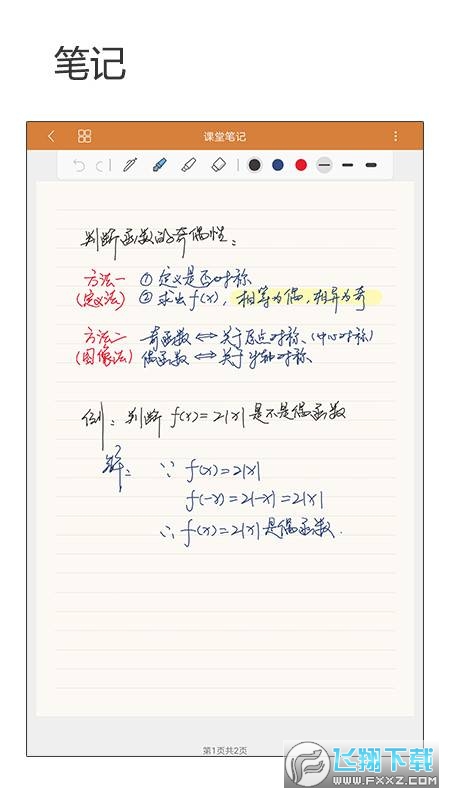 笔记
课堂笔记
判断函数的奇偶性:
方法一 ① 定义是否对称
(定义法) ② 求出f(x), 相等为偶,相异为奇
方法二 奇函数 ⇔ 关于原点对称、(中心对称)
(图像法) 偶函数 ⇔ 关于y轴对称、
例: 判断 f(x)=2|x| 是不是偶函数
解: ∵ f(x)=2|x|
f(-x)=2|-x|=2|x|
∴ f(x)=2|x| 是偶函数.
第1页共2页
飞翔下载
WWW.FXXZ.COM